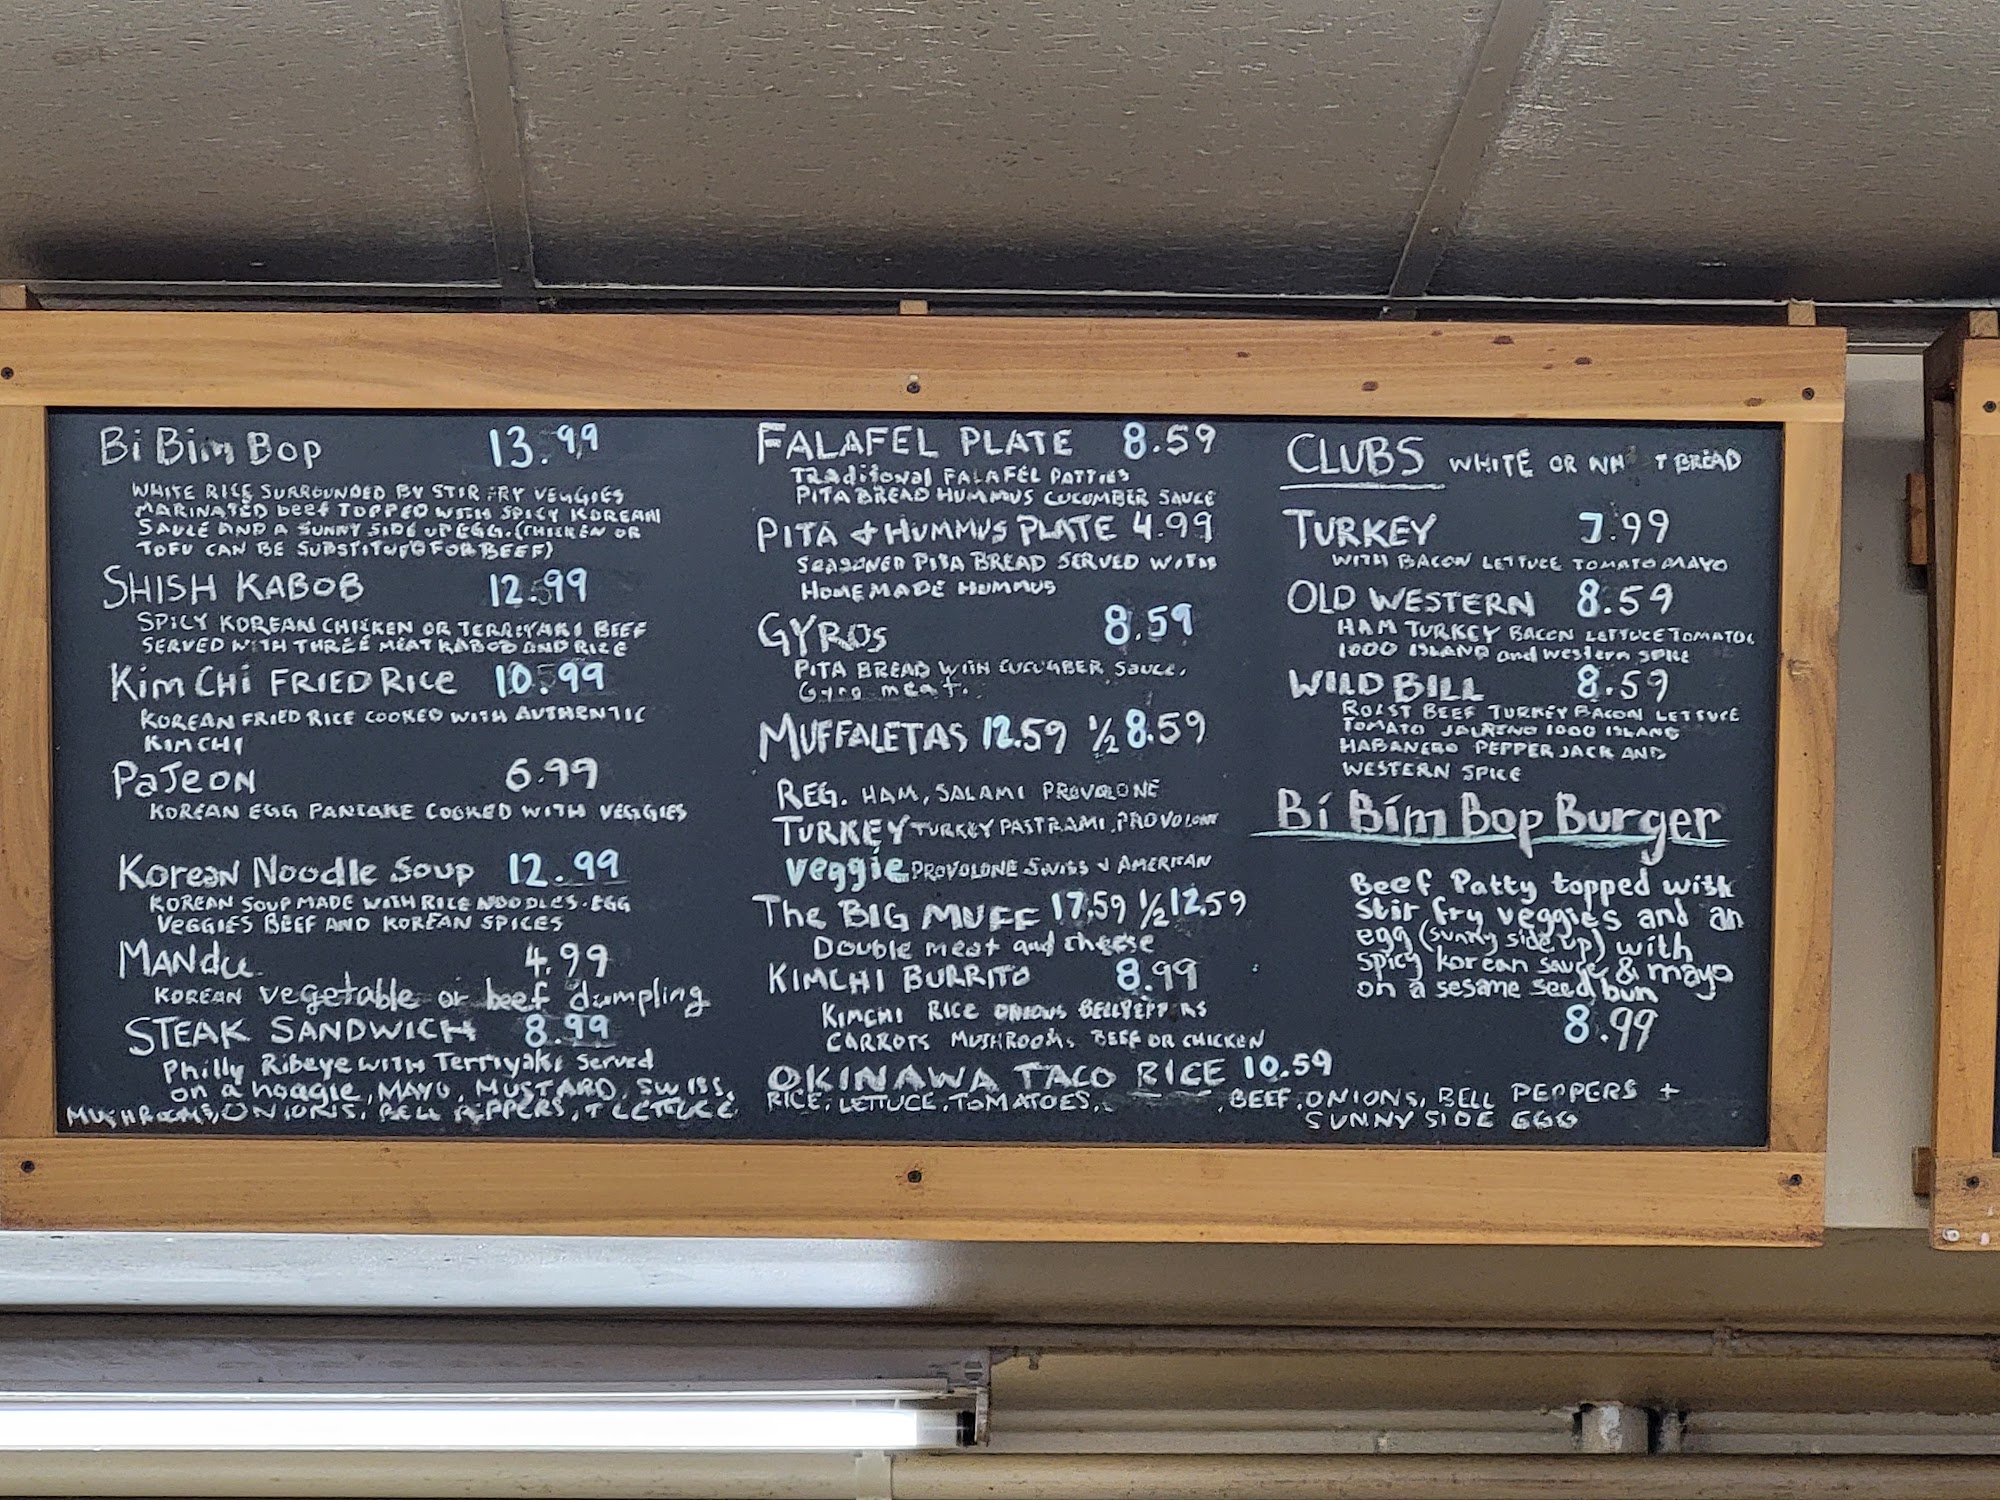 Bi Bim Bop 13.99
WHITE RICE SURROUNDED BY STIR FRY VEGGIES
MARINATED beef TOPPED WITH SPICY KOREAN
SAUCE AND A SUNNY SIDE UP EGG. (CHICKEN OR
TOFU CAN BE FOR BEEF)
SHISH KABOB 12.99
SPICY KOREAN CHICKEN OR TERRIYAKI BEEF
SERVED WITH THREE MEAT KABOB AND RICE
Kim CHi FRIED RICE 10.99
KOREAN FRIED RICE COOKED WITH AUTHENTIC
KIMCHI
PaJeON 6.99
KOREAN EGG PANCAKE COOKED WITH VEGGIES
Korean Noodle Soup 12.99
KOREAN SOUP MADE WITH RICE NOODLES. EGG
VEGGIES BEEF AND KOREAN SPICES
MANdu 4.99
KOREAN vegetable or beef dumpling
STEAK SANDWICH 8.99
Philly Ribeye WITH Terriyaki Served
on a hoagie, MAYO, MUSTARD, SWISS,
MUSHROOMS, ONIONS, BELL PEPPERS, + LETTUCE
FALAFEL PLATE 8.59
TRaditional FALAFEL PATTIES
PITA BREAD HUMMUS CUCUMBER SAUCE
PITA + HUMMUS PLATE 4.99
SEASONED PITA BREAD SERVED WITH
HOMEMADE HUMMUS
GYROs 8.59
PITA BREAD WITH CUCUMBER SAUCE,
Gyro meat.
MUFFALETAS 12.59 ½ 8.59
REG. HAM, SALAMI PROVOLONE
TURKEY TURKEY PASTRAMI, PROVOLONE
veggie PROVOLONE SWISS + AMERICAN
The BIG MUFF 17.59 ½ 12.59
Double meat and cheese
KIMCHI BURRITO 8.99
KIMCHI RICE ONIONS BELLPEPPERS
CARROTS MUSHROOMS BEEF OR CHICKEN
OKINAWA TACO RICE 10.59
RICE, LETTUCE, TOMATOES, , BEEF, ONIONS, BELL PEPPERS +
SUNNY SIDE EGG
CLUBS WHITE OR BREAD
TURKEY 7.99
WITH BACON LETTUCE TOMATO MAYO
OLD WESTERN 8.59
HAM TURKEY BACON LETTUCE TOMATOE
1000 ISLAND and Western SPICE
WILD BILL 8.59
ROAST BEEF TURKEY BACON LETTUCE
TOMATO 1000 ISLAND
HABANERO PEPPER JACK AND
WESTERN SPICE
Bi Bim Bop Burger
Beef Patty topped with
Stir fry veggies and an
egg (sunny side up) with
spicy korean sauce & mayo
on a sesame seed bun
8.99